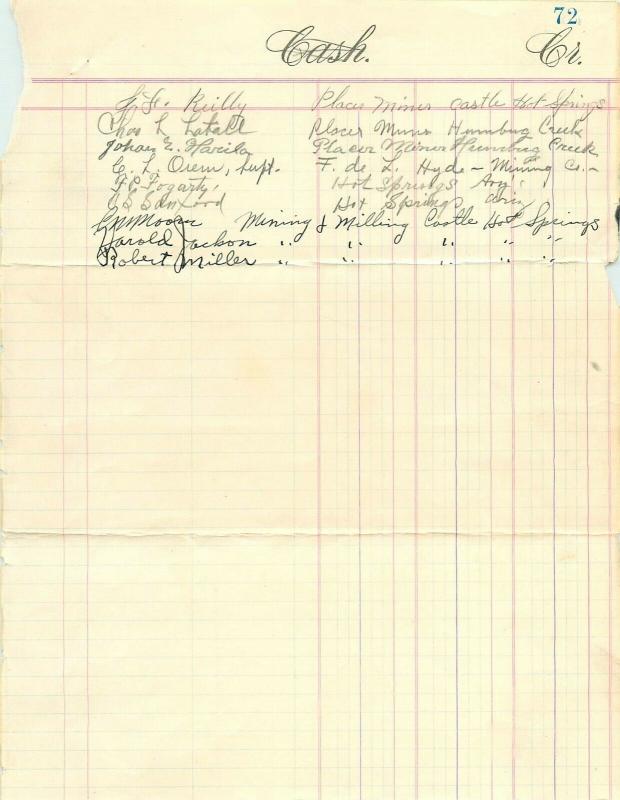 72
Cash. Cr.
Reilly Placer Miner Castle Hot Springs
Chas L Placer Miner Humbug Creek
Johan E. Placer Miner Humbug Creek
C. L. Orem, Supt. F. de L. Hyde - Mining Co. -
F. P. Fogarty, Hot Springs Ariz.
Sanford Hot Springs Ariz
Moore Mining & Milling Castle Hot Springs
Harold Jackson " " " " "
Robert Miller " " " " "